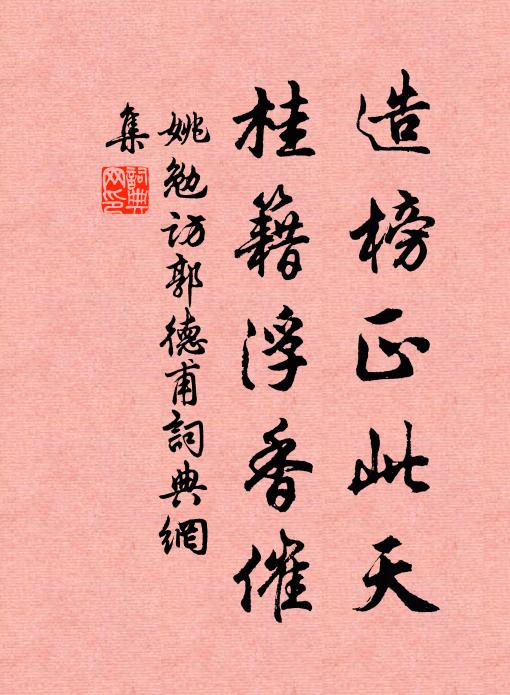 造榜正此天
桂籍浮香催
姚勉访郭德甫詞典網
集
詞典网印